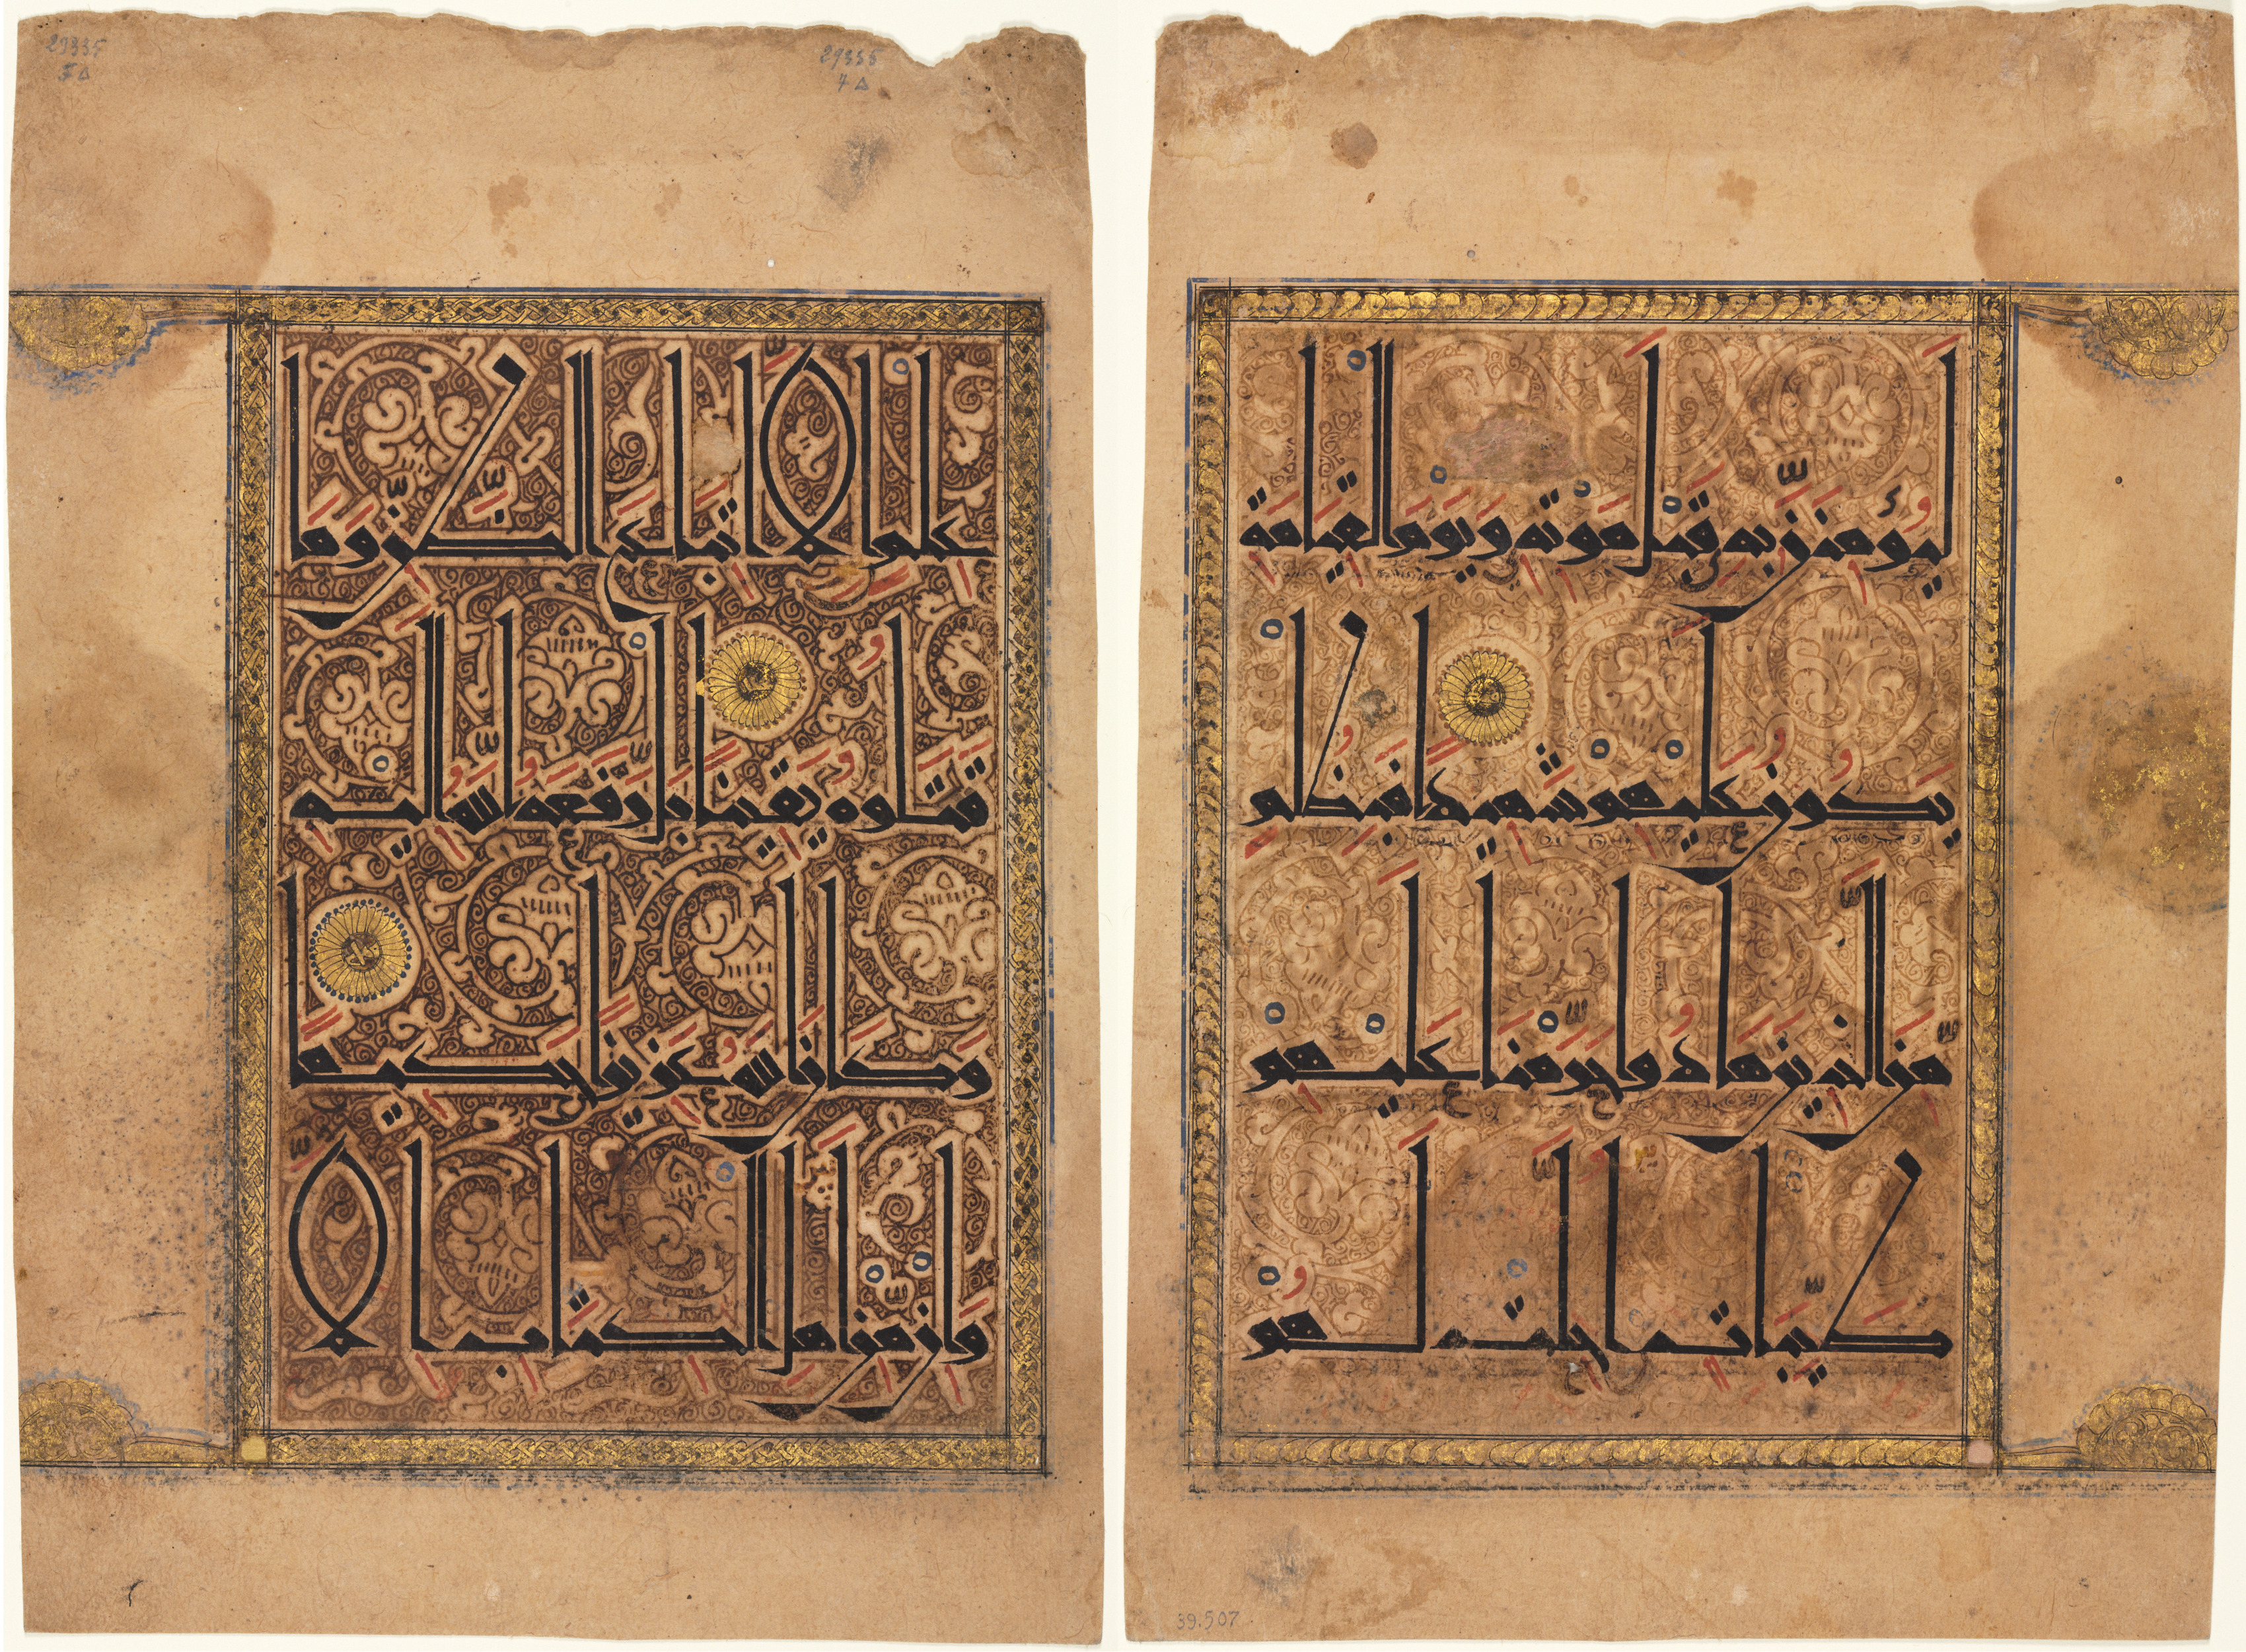 29335
29335
4 Δ
عِلْمٍ إِلَّا اتِّبَاعَ الظَّنِّ وَمَا
قَتَلُوهُ يَقِينًا بَلْ رَفَعَهُ اللَّهُ إِلَيْهِ
وَكَانَ اللَّهُ عَزِيزًا حَكِيمًا
وَإِنْ مِنْ أَهْلِ الْكِتَابِ إِلَّا
لَيُؤْمِنَنَّ بِهِ قَبْلَ مَوْتِهِ وَيَوْمَ الْقِيَامَةِ
يَكُونُ عَلَيْهِمْ شَهِيدًا فَبِظُلْمٍ
مِنَ الَّذِينَ هَادُوا حَرَّمْنَا عَلَيْهِمْ
طَيِّبَاتٍ أُحِلَّتْ لَهُمْ
39.507